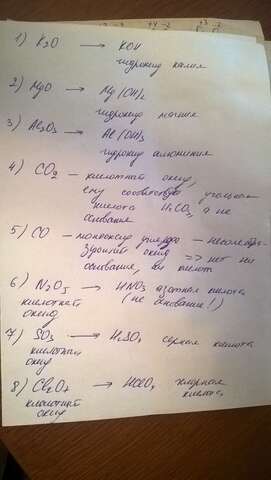 1) K2O → KOH
гидроксид калия
2) MgO → Mg(OH)2
гидроксид магния
3) Al2O3 → Al(OH)3
гидроксид алюминия
4) CO2 – кислотный оксид,
ему соответствует угольная
кислота H2CO3, а не
основание
5) CO – монооксид углерода – несолеоб-
разующий оксид => нет ни
основания, ни кислот
6) N2O5 → HNO3 азотная кислота
кислотный (не основание!)
оксид
7) SO3 → H2SO4 серная кислота
кислотный
оксид
8) Cl2O7 → HClO4 хлорная
кислотный кислота
оксид